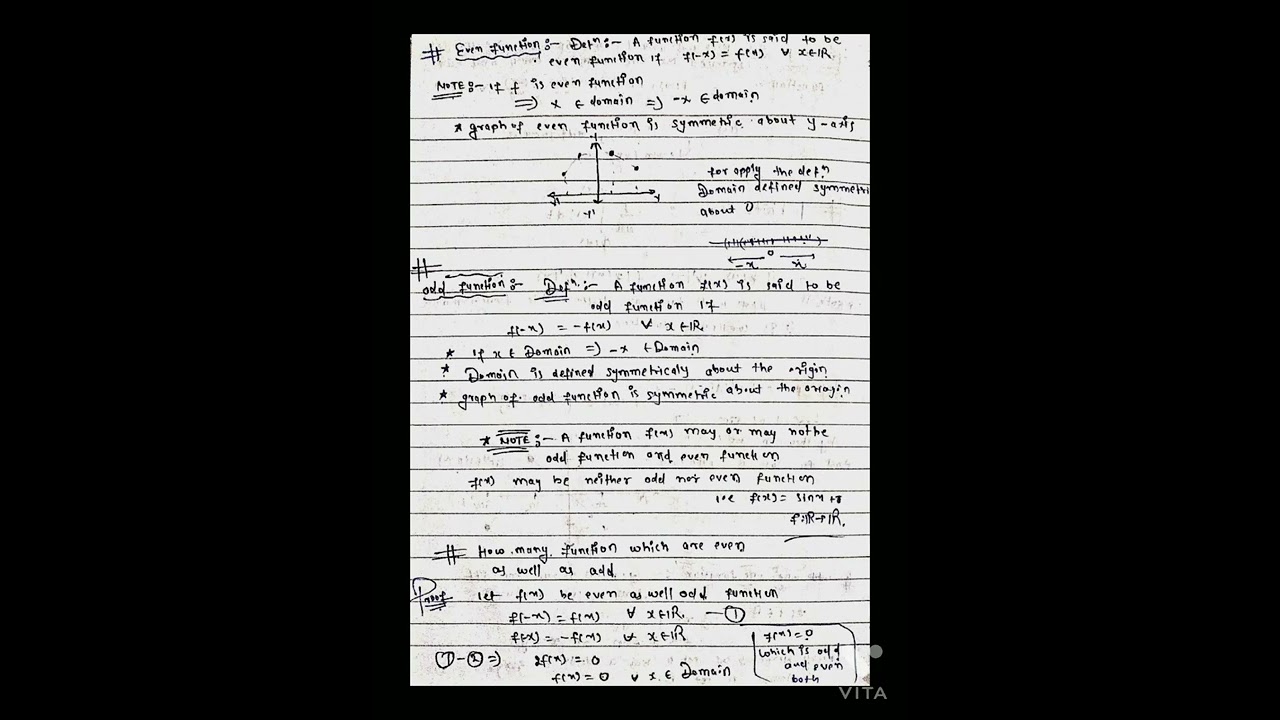 # Even function :- Defn :- A function f(x) is said to be
even function if f(-x) = f(x) ∀ x∈IR
NOTE :- if f is even function
=) x ∈ domain =) -x ∈ domain
* graph of even function is symmetric about y-axis
for apply the defn
Domain defined symmetri
about 0
0
-x x
#
odd function :- Defn. :- A function f(x) is said to be
odd function if
f(-x) = -f(x) ∀ x∈IR
* if x ∈ Domain =) -x ∈ Domain
* Domain is defined symmetricaly about the origin
* graph of odd function is symmetric about the oragin
* NOTE :- A function f(x) may or may not be
odd function and even function
f(x) may be neither odd nor even function
i.e f(x) = sinx +
f:IR→IR.
# How many function which are even
as well as add
Proof let f(x) be even as well odd function
f(-x) = f(x) ∀ x∈IR — ①
f(-x) = -f(x) ∀ x∈IR
① - ② =) 2f(x) = 0
f(x) = 0 ∀ x ∈ Domain
f(x) = 0
which is odd
and even
both
VITA